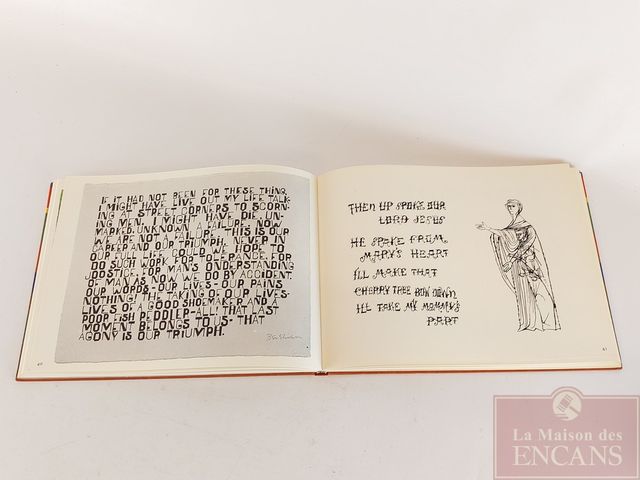 IF IT HAD NOT BEEN FOR THESE THING,
I MIGHT HAVE LIVE OUT MY LIFE TALK-
ING AT STREET CORNERS TO SCORN-
ING MEN. I MIGHT HAVE DIE, UN-
MARKED, UNKNOWN, A FAILURE. NOW
WE ARE NOT A FAILURE. THIS IS OUR
CAREER AND OUR TRIUMPH. NEVER IN
OUR FULL LIFE COULD WE HOPE TO
DO SUCH WORK FOR TOLERANCE, FOR
JOOSTICE, FOR MAN'S ONDERSTANDING
OF MAN AS NOW WE DO BY ACCIDENT.
OUR WORDS - OUR LIVES - OUR PAINS
NOTHING! THE TAKING OF OUR LIVES-
LIVES OF A GOOD SHOEMAKER AND A
POOR FISH PEDDLER-ALL! THAT LAST
MOMENT BELONGS TO US- THAT
AGONY IS OUR TRIUMPH.
Ben Shahn
60
THEN UP SPOKE OUR
LORD JESUS
HE SPOKE FROM
MARY'S HEART
ILL MAKE THAT
CHERRY TREE BOW DOWN
ILL TAKE MY MOMMY'S
PART
61
La Maison des
ENCANS